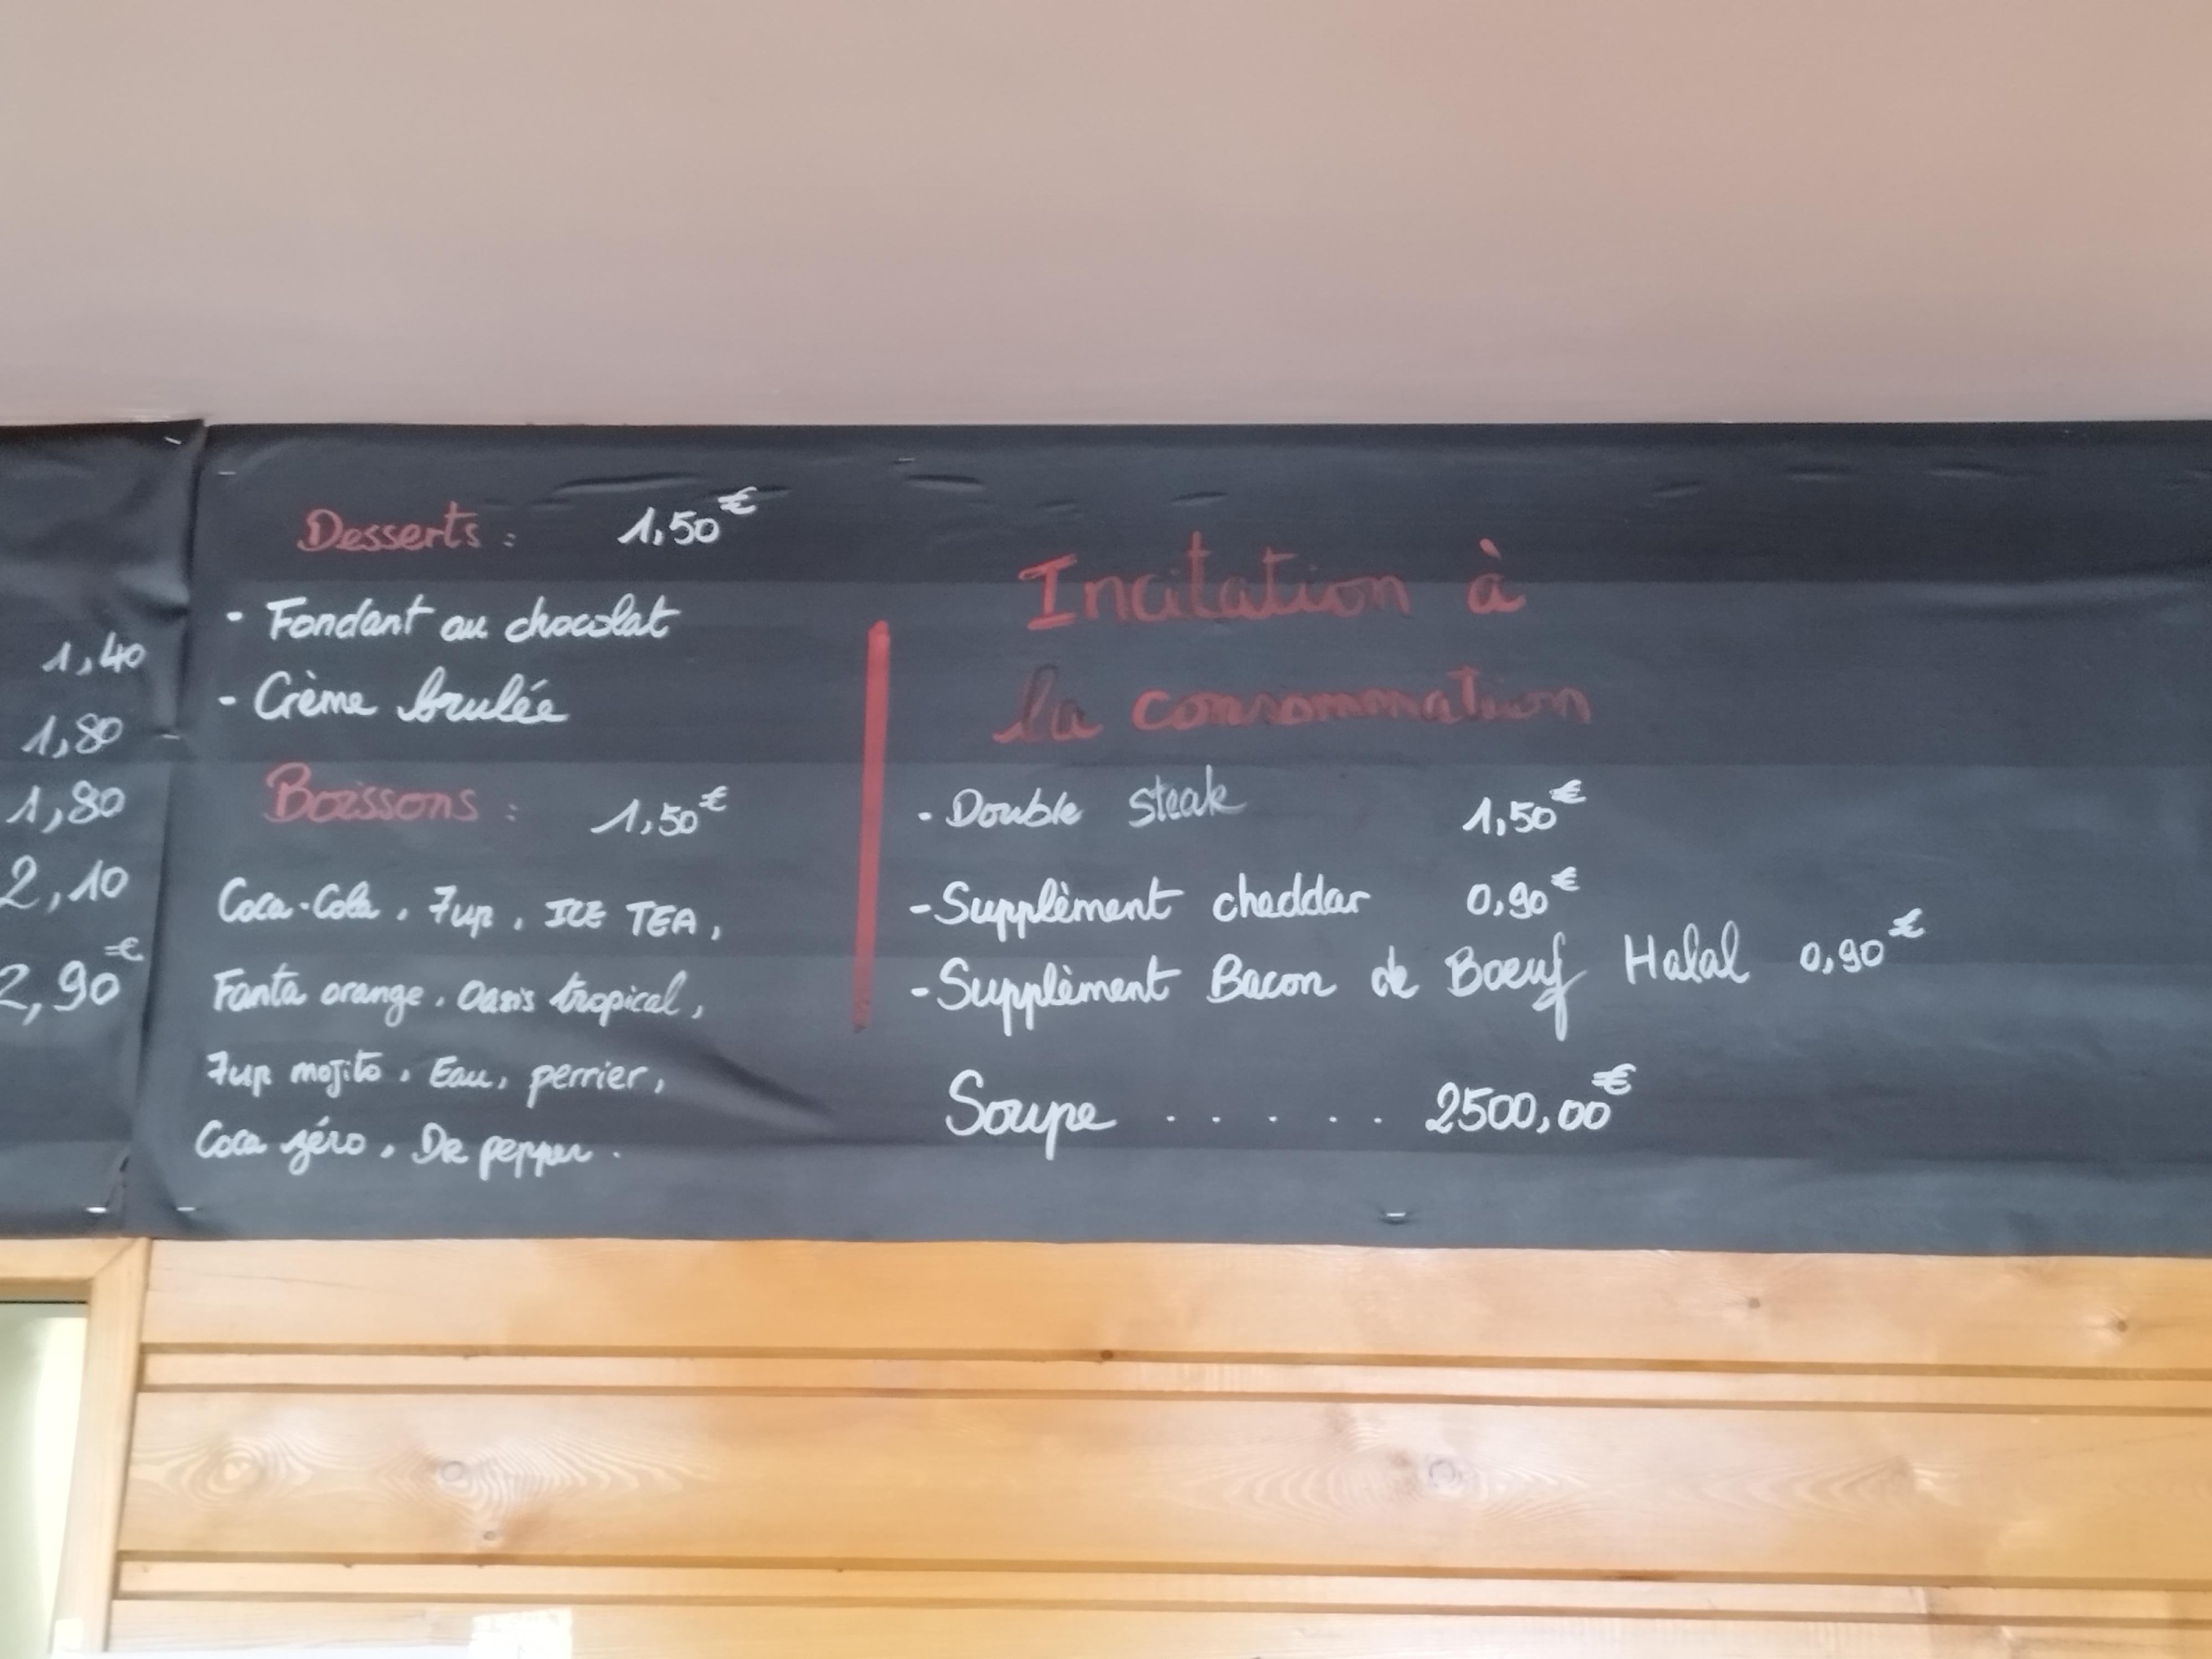 1,40
1,80
1,80
2,10
2,90€
Desserts : 1,50€
- Fondant au chocolat
- Crème brulée
Boissons : 1,50€
Coca-Cola, 7up, ICE TEA,
Fanta orange, Oasis tropical,
7up mojito, Eau, perrier,
Coca zéro, Dr pepper.
Incitation à
la consommation
- Double steak 1,50€
- Supplèment cheddar 0,90€
- Supplèment Bacon de Boeuf Halal 0,90€
Soupe ...... 2500,00€